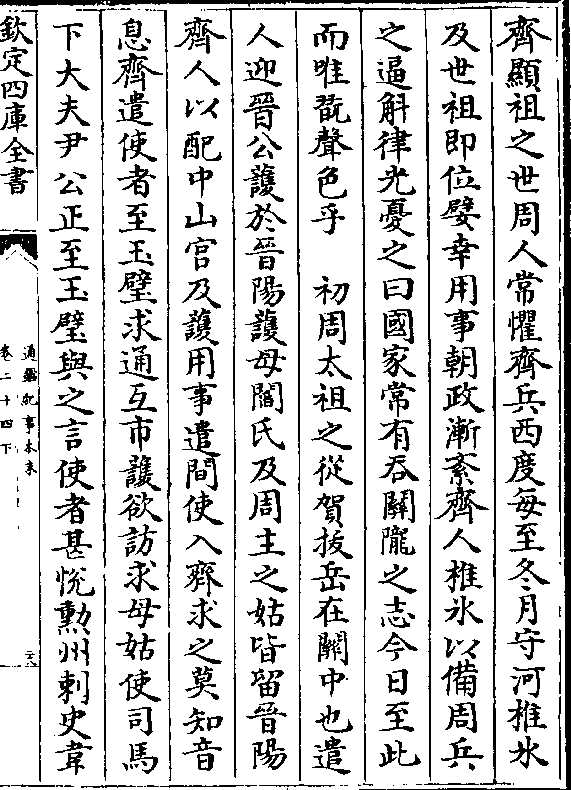 齊顯祖之世周人常懼齊兵西度每至冬月守河椎氷
及世祖即位嬖幸用事朝政漸紊齊人椎氷以備周兵
之逼斛律光憂之曰國家常有吞關隴之志今日至此
而唯翫聲色乎　初周太祖之從賀拔岳在關中也遣
人迎晉公護於晉陽護母閻氏及周主之姑皆留晉陽
齊人以配中山宮及護用事遣間使入齊求之莫知音
息齊遣使者至玉壁求通互市護欲訪求母姑使司馬
下大夫尹公正至玉璧與之言使者甚悅勲州刺史韋
欽定四庫全書
通鑑紀事本末
卷二十四下